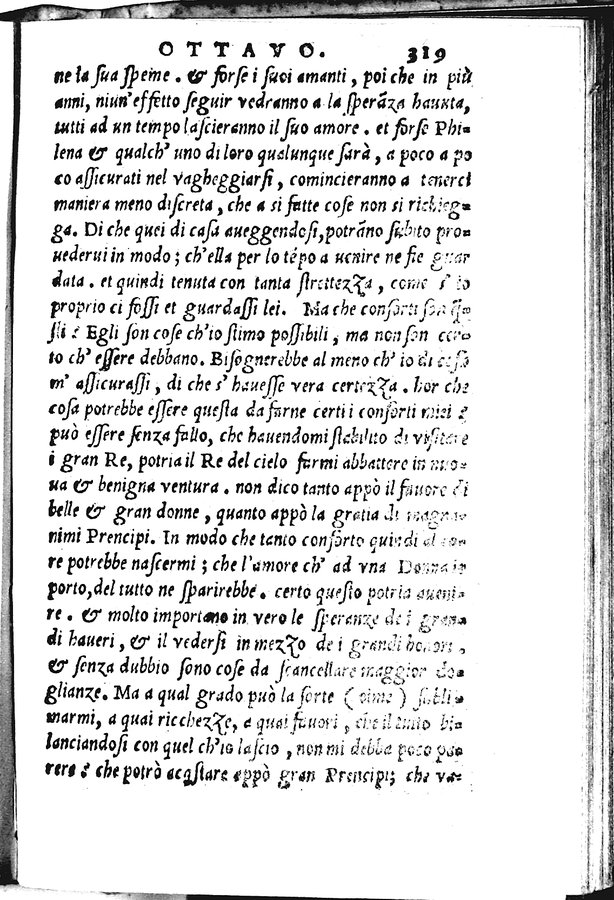 OTTAVO. 319
ne la sua speme. & forse i suoi amanti, poi che in più
anni, niun'effetto seguir vedranno a la sperãza hauuta,
tutti ad un tempo lascieranno il suo amore. et forse Phi-
lena & qualch' uno di loro qualunque sarà, a poco a po
co assicurati nel vagheggiarsi, comincieranno a tenerci
maniera meno discreta, che a si fatte cose non si richieg-
ga. Di che quei di casa aueggendosi, potrãno subito pro-
uedervi in modo; ch'ella per lo tẽpo a uenire ne fie guar
data. et quindi tenuta con tanta strettezza, come s' io
proprio ci fossi et guardassi lei. Ma che conforti son q̃-
sti? Egli son cose ch'io stimo possibili, ma non son cer-
to ch' essere debbano. Bisognerebbe al meno ch' io di
m' assicurassi, di che s' hauesse vera certezza. hor che
cosa potrebbe essere questa da farne certi i conforti miei?
può essere senza fallo, che hauendomi stabilito di visitare
i gran Re, potria il Re del cielo farmi abbattere in nuo-
ua & benigna ventura. non dico tanto appò il fauore di
belle & gran donne, quanto appò la gratia di magna-
nimi Prencipi. In modo che tanto conforto quindi al cuo-
re potrebbe nascermi; che l'amore ch' ad vna Donna io
porto, del tutto ne sparirebbe. certo questo potria aueni-
re. & molto importano in vero le speranze de i gran-
di haueri, & il vedersi in mezzo de i grandi honori,
& senza dubbio sono cose da scancellare maggior do-
glianze. Ma a qual grado può la sorte (oime) subli-
marmi, a quai ricchezze, a quai fauori, che il tutto bi-
lanciandosi con quel ch'io lascio, non mi debba poco pa-
rere? che potrò acqstare appò gran Prencipi; che va-